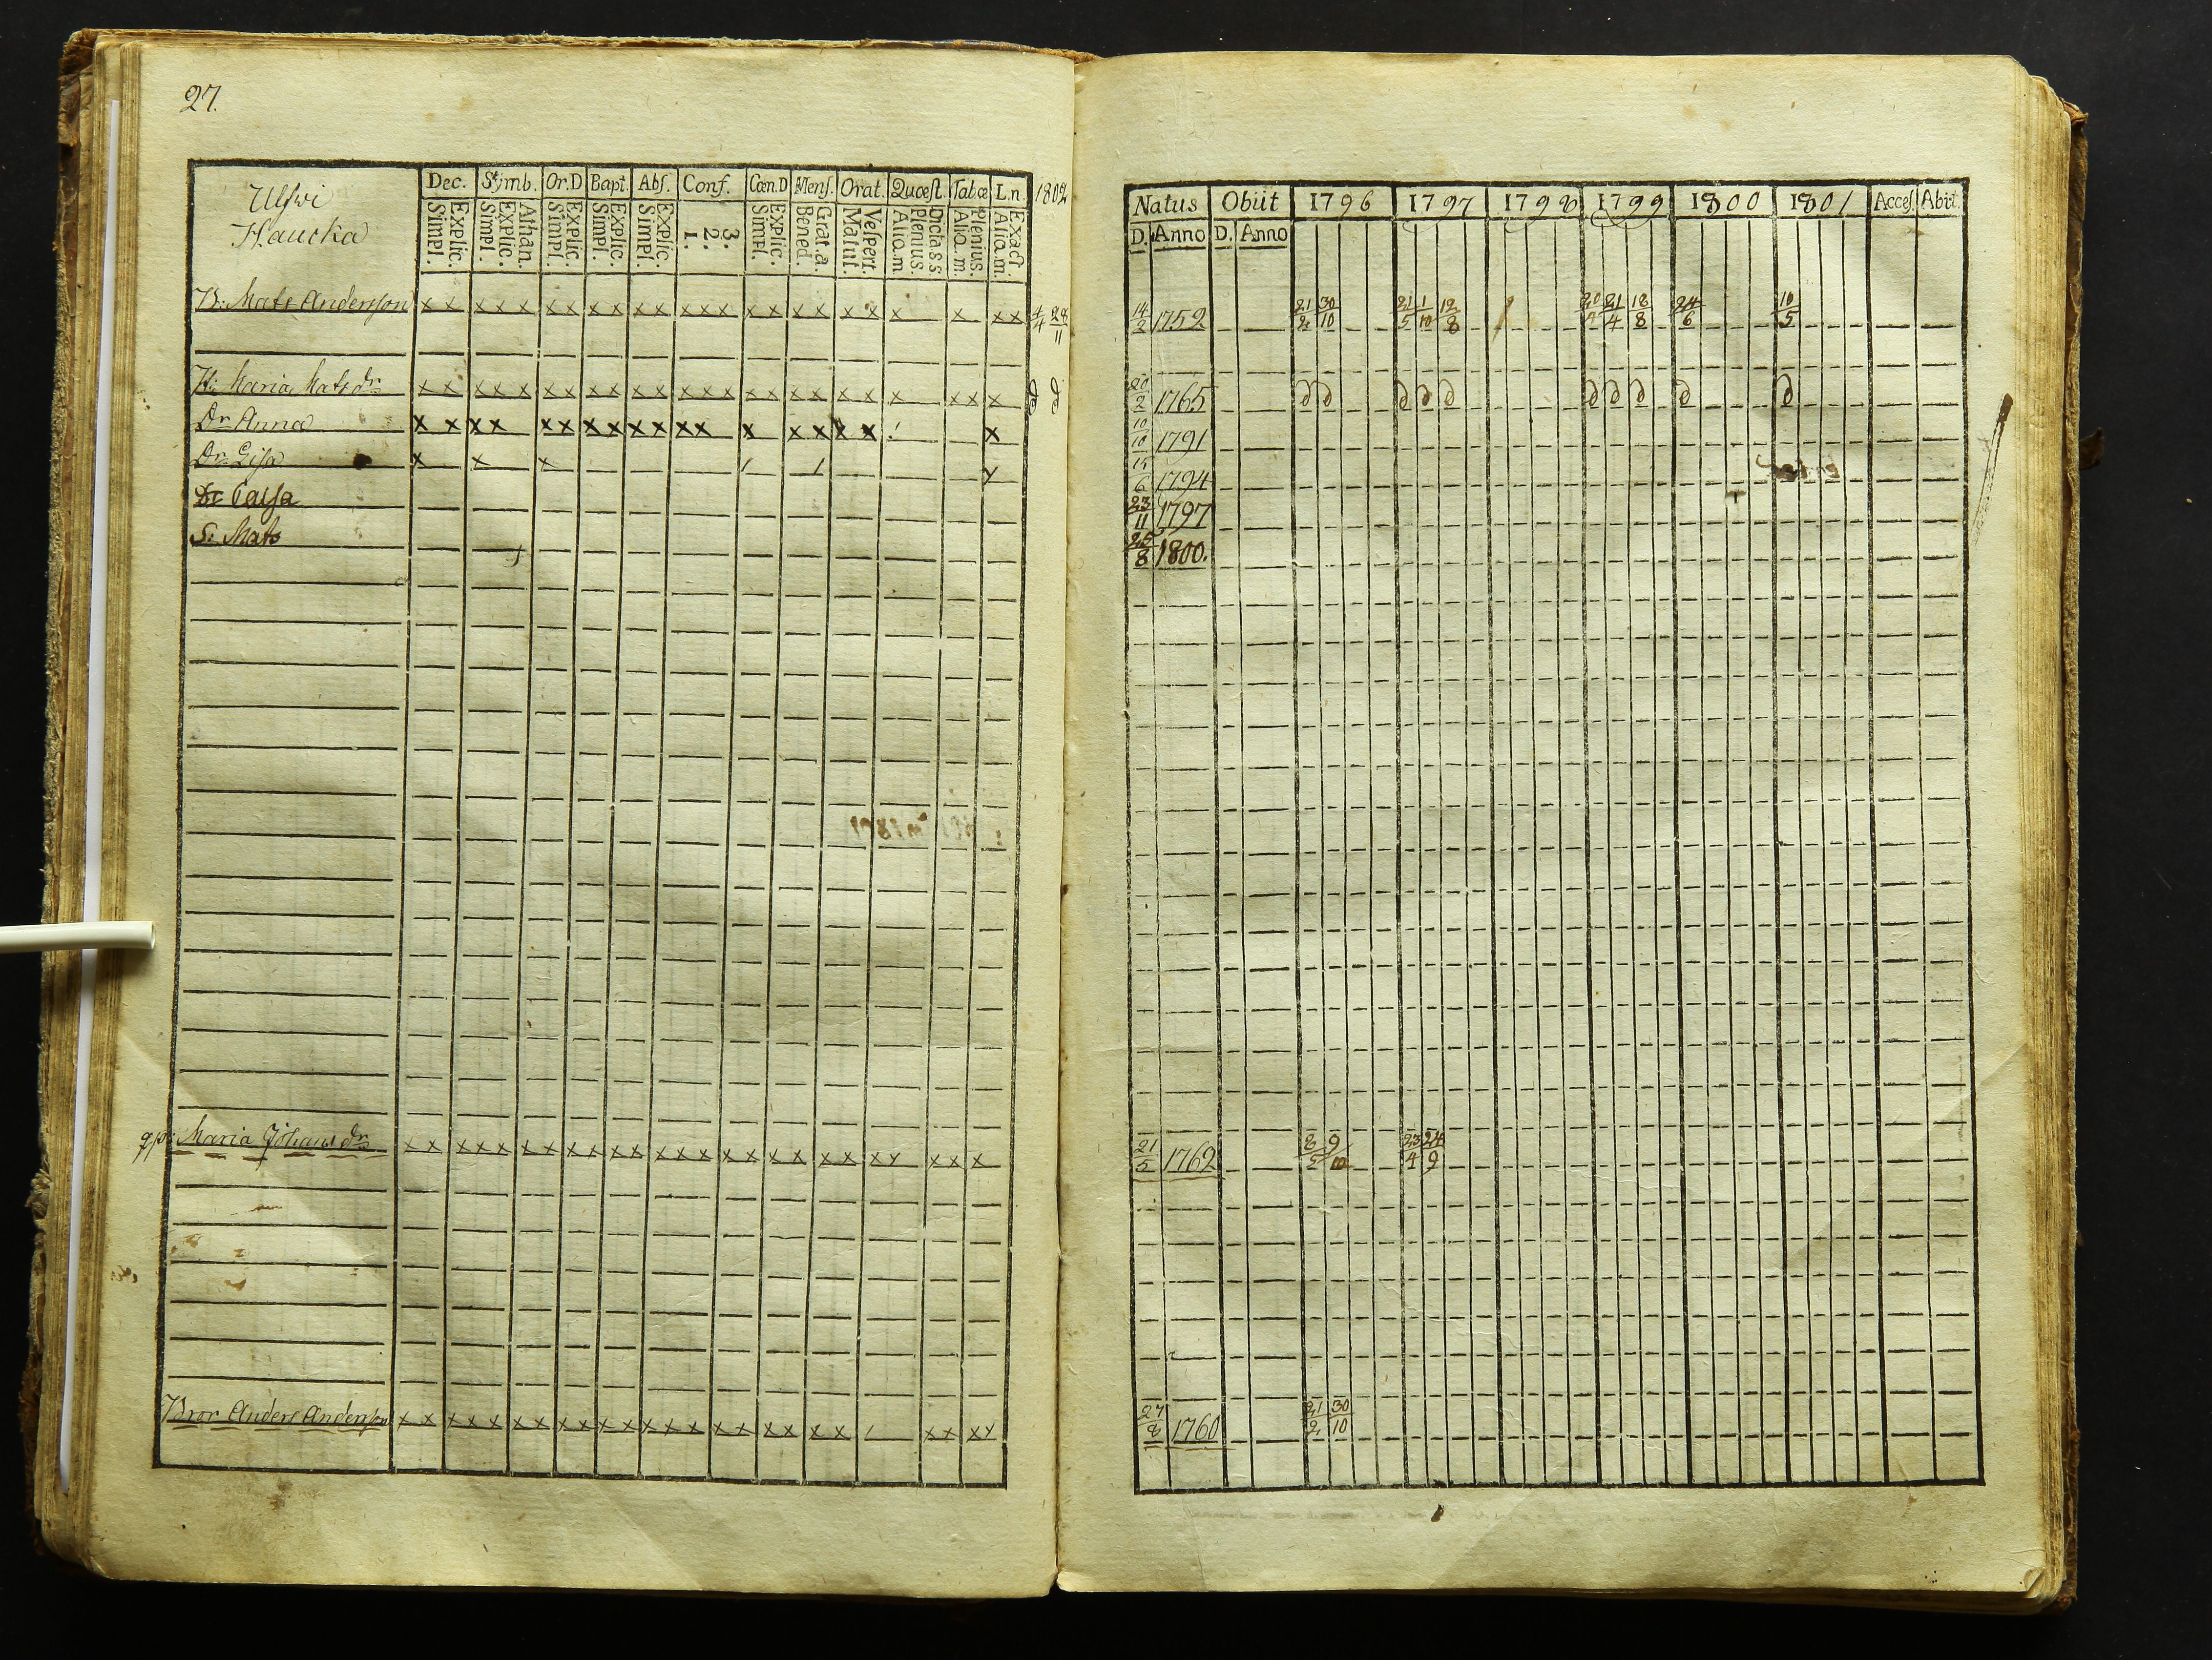 27.
Ulfwi
Haucka
Dec. Symb. Or.D Bapt. Abſ. Conf. Cœn.D Menſ. Orat. Quœſt. Tabœ L.n. 1802
Simpl. Explic. Simpl. Explic. Athan. Simpl. Explic. Simpl. Explic. Simpl. Explic. 1. 2. 3. Simpl. Explic. Bened. Grat.a. Matut. Veſpert. Aliq.m Plenius. Dicta S S Aliq.m. Plenius. Aliq.m. Exact
B: Mats Anderſson x x x x x x x x x x x x x x x x x x x x x x x x 4/4 28/11
H: Maria Matsdr x x x x x x x x x x x x x x x x x x x x x x x
Dr Anna x x x x x x x x x x x x x x x x x x
Dr: Lisa x x x
Dr Caisa
S: Mats
Maria Johansdr x x x x x x x x x x x x x x x x x x x x x x x x
Bror Anders Anderſson x x x x x x x x x x x x x x x x x x x x x x x
Natus Obiit 1796 1797 1798 1799 1800 1801 Acceſ. Abiit
D. Anno D. Anno
14/2 1752 21/2 30/10 21/5 1/10 12/8 20/4 21/4 18/8 24/6 10/5
20/2 1765 d d d d d d d d d d
10/10 1791
15/6 1794
23/11 1797
25/8 1800.
21/5 1762 9/10 23/4 24/9
27/8 1760 21/2 30/10